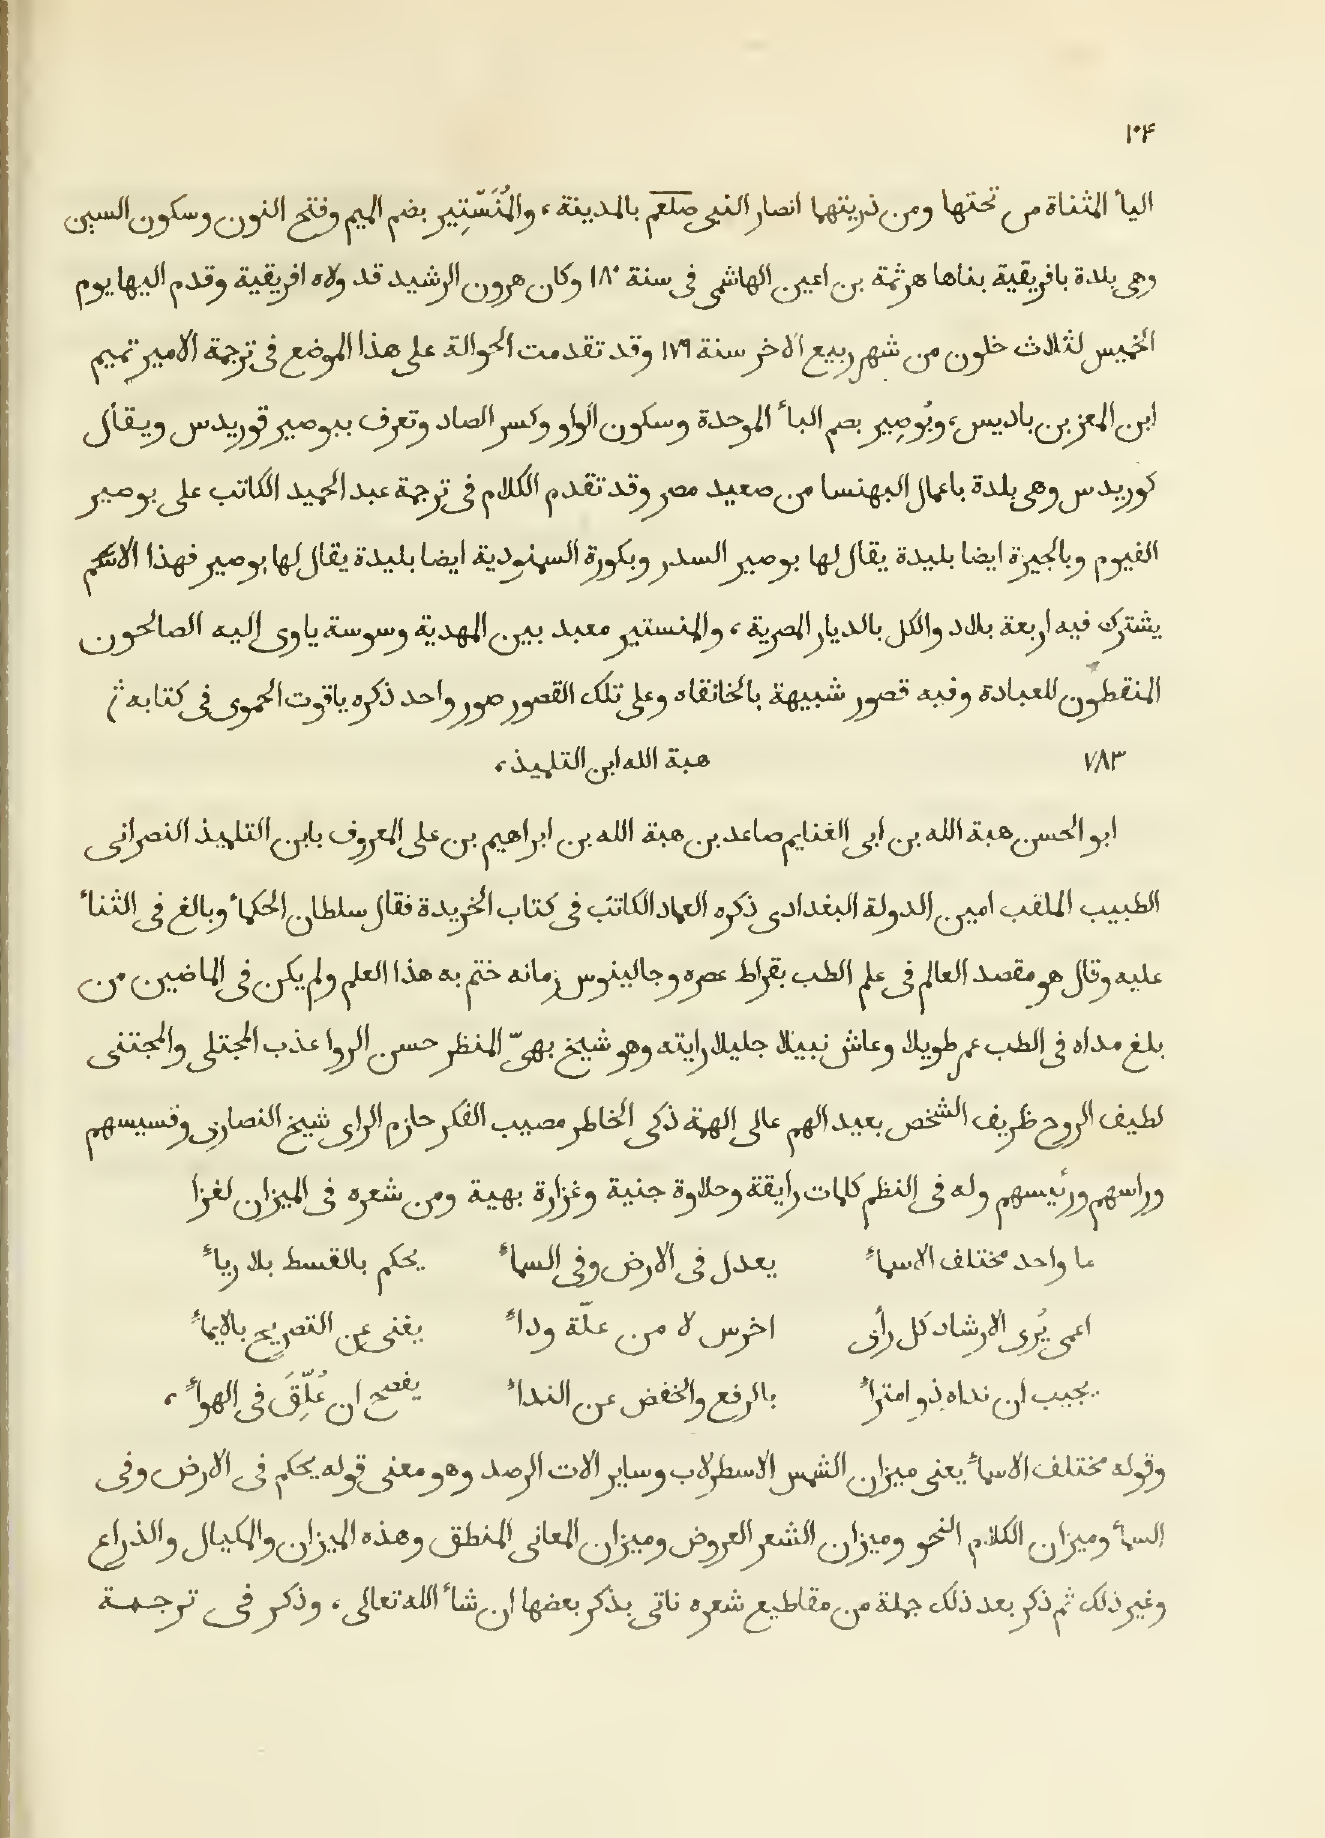 ١٠٤
اليأ المثناة من تحتها ومن ذريتهما انصار النبى صلعم بالمدينة، والمُنَسْتِير بضم الميم وفتح النون وسكون السين
وهى بلدة بافريقية بناها هرثمة بن اعين الهاشمى فى سنة ١٨٠ وكان هرون الرشيد قد ولاه افريقية وقدم اليها يوم
الخميس لثلاث خلون من شهر ربيع الاخر سنة ١٧٩ وقد تقدمت الحوالة على هذا الموضع فى ترجمة الامير تميم
ابن المعز بن باديس، وبُوصِير بصم البأ الموحدة وسكون الواو وكسر الصاد وتعرف ببوصير قوريدس ويقال
كوريدس وهى بلدة باعمال البهنسا من صعيد مصر وقد تقدم الكلام فى ترجمة عبد الحميد الكاتب على بوصير
الفيوم وبالجيزة ايضا بليدة يقال لها بوصير السدر وبكورة السمنودية ايضا بليدة يقال لها بوصير فهذا الاسم
يشترك فيه اربعة بلاد والكل بالديار المصرية، والمنستير معبد بين المهدية وسوسة ياوى إليه الصالحون
المنقطون للعبادة وفيه قصور شبيهة بالخانقاه وعلى تلك القصور صور واحد ذكره ياقوت الحموى فى كتابه
٧٨٣ هبة الله ابن التلميذ،
ابو الحسن هبة الله بن ابى الغنايم صاعد بن هبة الله بن ابراهيم بن على المعروف بابن التلميذ النصرانى
الطبيب الملقب امين الدولة البغدادى ذكره العماد الكاتب فى كتاب الخريدة فقال سلطان الحكمأ وبالغ فى الثنأ
عليه وقال هو مقصد العالم فى علم الطب بقراط عصره وجالينوس زمانه ختم به هذا العلم ولم يكن فى الماضين من
بلغ مداه فى الطب عمر طويلا وعاش نبيلا جليلا رايته وهو شيخ بهىّ المنظر حسن الروا عذب المجتلى والمجتنى
لطيف الروح ظريف الشخص بعيد الهم عالى الهمة ذكى الخاطر مصيب الفكر حازم الراى شيخ النصارى وقسيسهم
وراسهم ورئيسهم وله فى النظم كلمات رايقة وحلاوة جنية وغزارة بهية ومن شعره فى الميزان لغزا
ما واحد مختلف الاسمأ يعدل فى الارض وفى السمأ يحكم بالقسط بلا ريأ
اعمى يُرى الارشاد كل رأى اخرس لا من علّة ودأ يغنى عن التصريح بالايمأ
يجيب ان نداه ذو امترأ بالرفع والخفض عن الندأ يفصح ان عُلِّقَ فى الهوأ،
وقوله مختلف الاسمأ يعنى ميزان الشمس الاسطرلاب وساير الات الرصد وهو معنى قوله يحكم فى الارض وفى
السمأ وميزان الكلام النحو وميزان الشعر العروض وميزان المعانى المنطق وهذه الميزان والمكيال والذراع
وغير ذلك ثم ذكر بعد ذلك جملة من مقاطيع شعره ناتى بذكر بعضها ان شأ الله تعالى، وذكر فى ترجمة